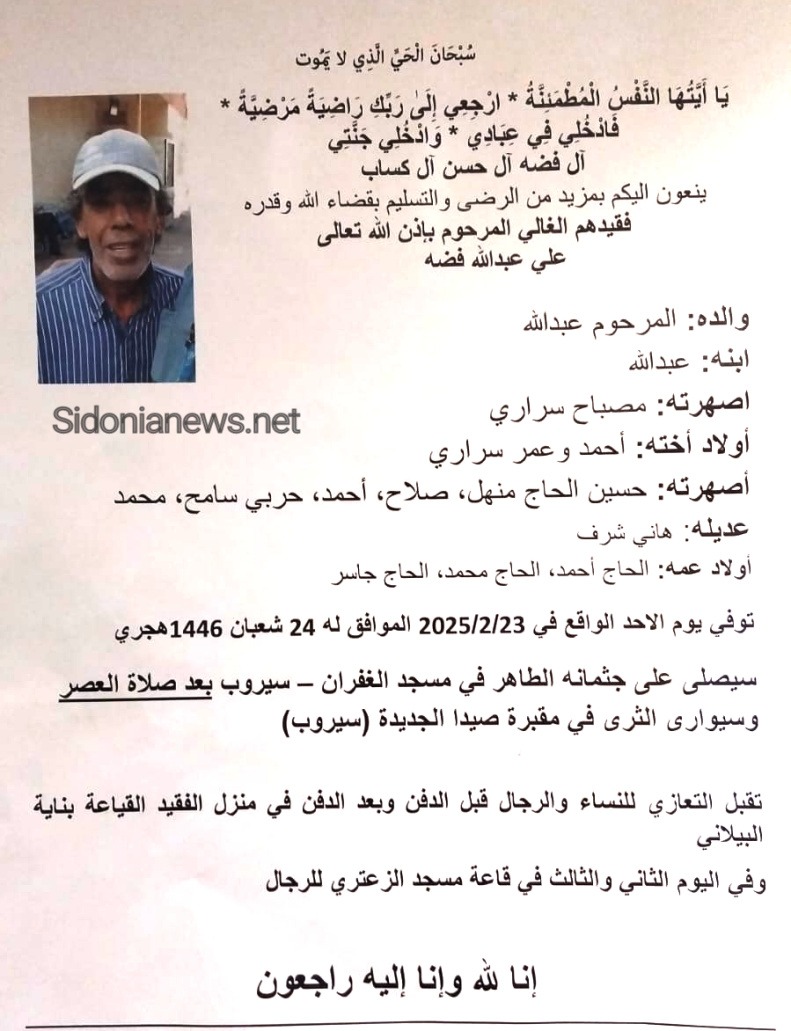 سُبْحَانَ الْحَيِّ الَّذِي لا يَمُوت
يَا أَيَّتُهَا النَّفْسُ الْمُطْمَئِنَّةُ * ارْجِعِي إِلَىٰ رَبِّكِ رَاضِيَةً مَرْضِيَّةً *
فَادْخُلِي فِي عِبَادِي * وَادْخُلِي جَنَّتِي
آل فضه آل حسن آل كساب
ينعون اليكم بمزيد من الرضى والتسليم بقضاء الله وقدره
فقيدهم الغالي المرحوم بإذن الله تعالى
علي عبدالله فضه
والده: المرحوم عبدالله
ابنه: عبدالله
اصهرته: مصباح سراري
أولاد أخته: أحمد وعمر سراري
أصهرته: حسين الحاج منهل، صلاح، أحمد، حربي سامح، محمد
عديله: هاني شرف
أولاد عمه: الحاج أحمد، الحاج محمد، الحاج جاسر
توفي يوم الاحد الواقع في 2025/2/23 الموافق له 24 شعبان 1446هجري
سيصلى على جثمانه الطاهر في مسجد الغفران – سيروب بعد صلاة العصر
وسيوارى الثرى في مقبرة صيدا الجديدة (سيروب)
تقبل التعازي للنساء والرجال قبل الدفن وبعد الدفن في منزل الفقيد القياعة بناية
البيلاني
وفي اليوم الثاني والثالث في قاعة مسجد الزعتري للرجال
إنا لله وإنا إليه راجعون
Sidonianews.net